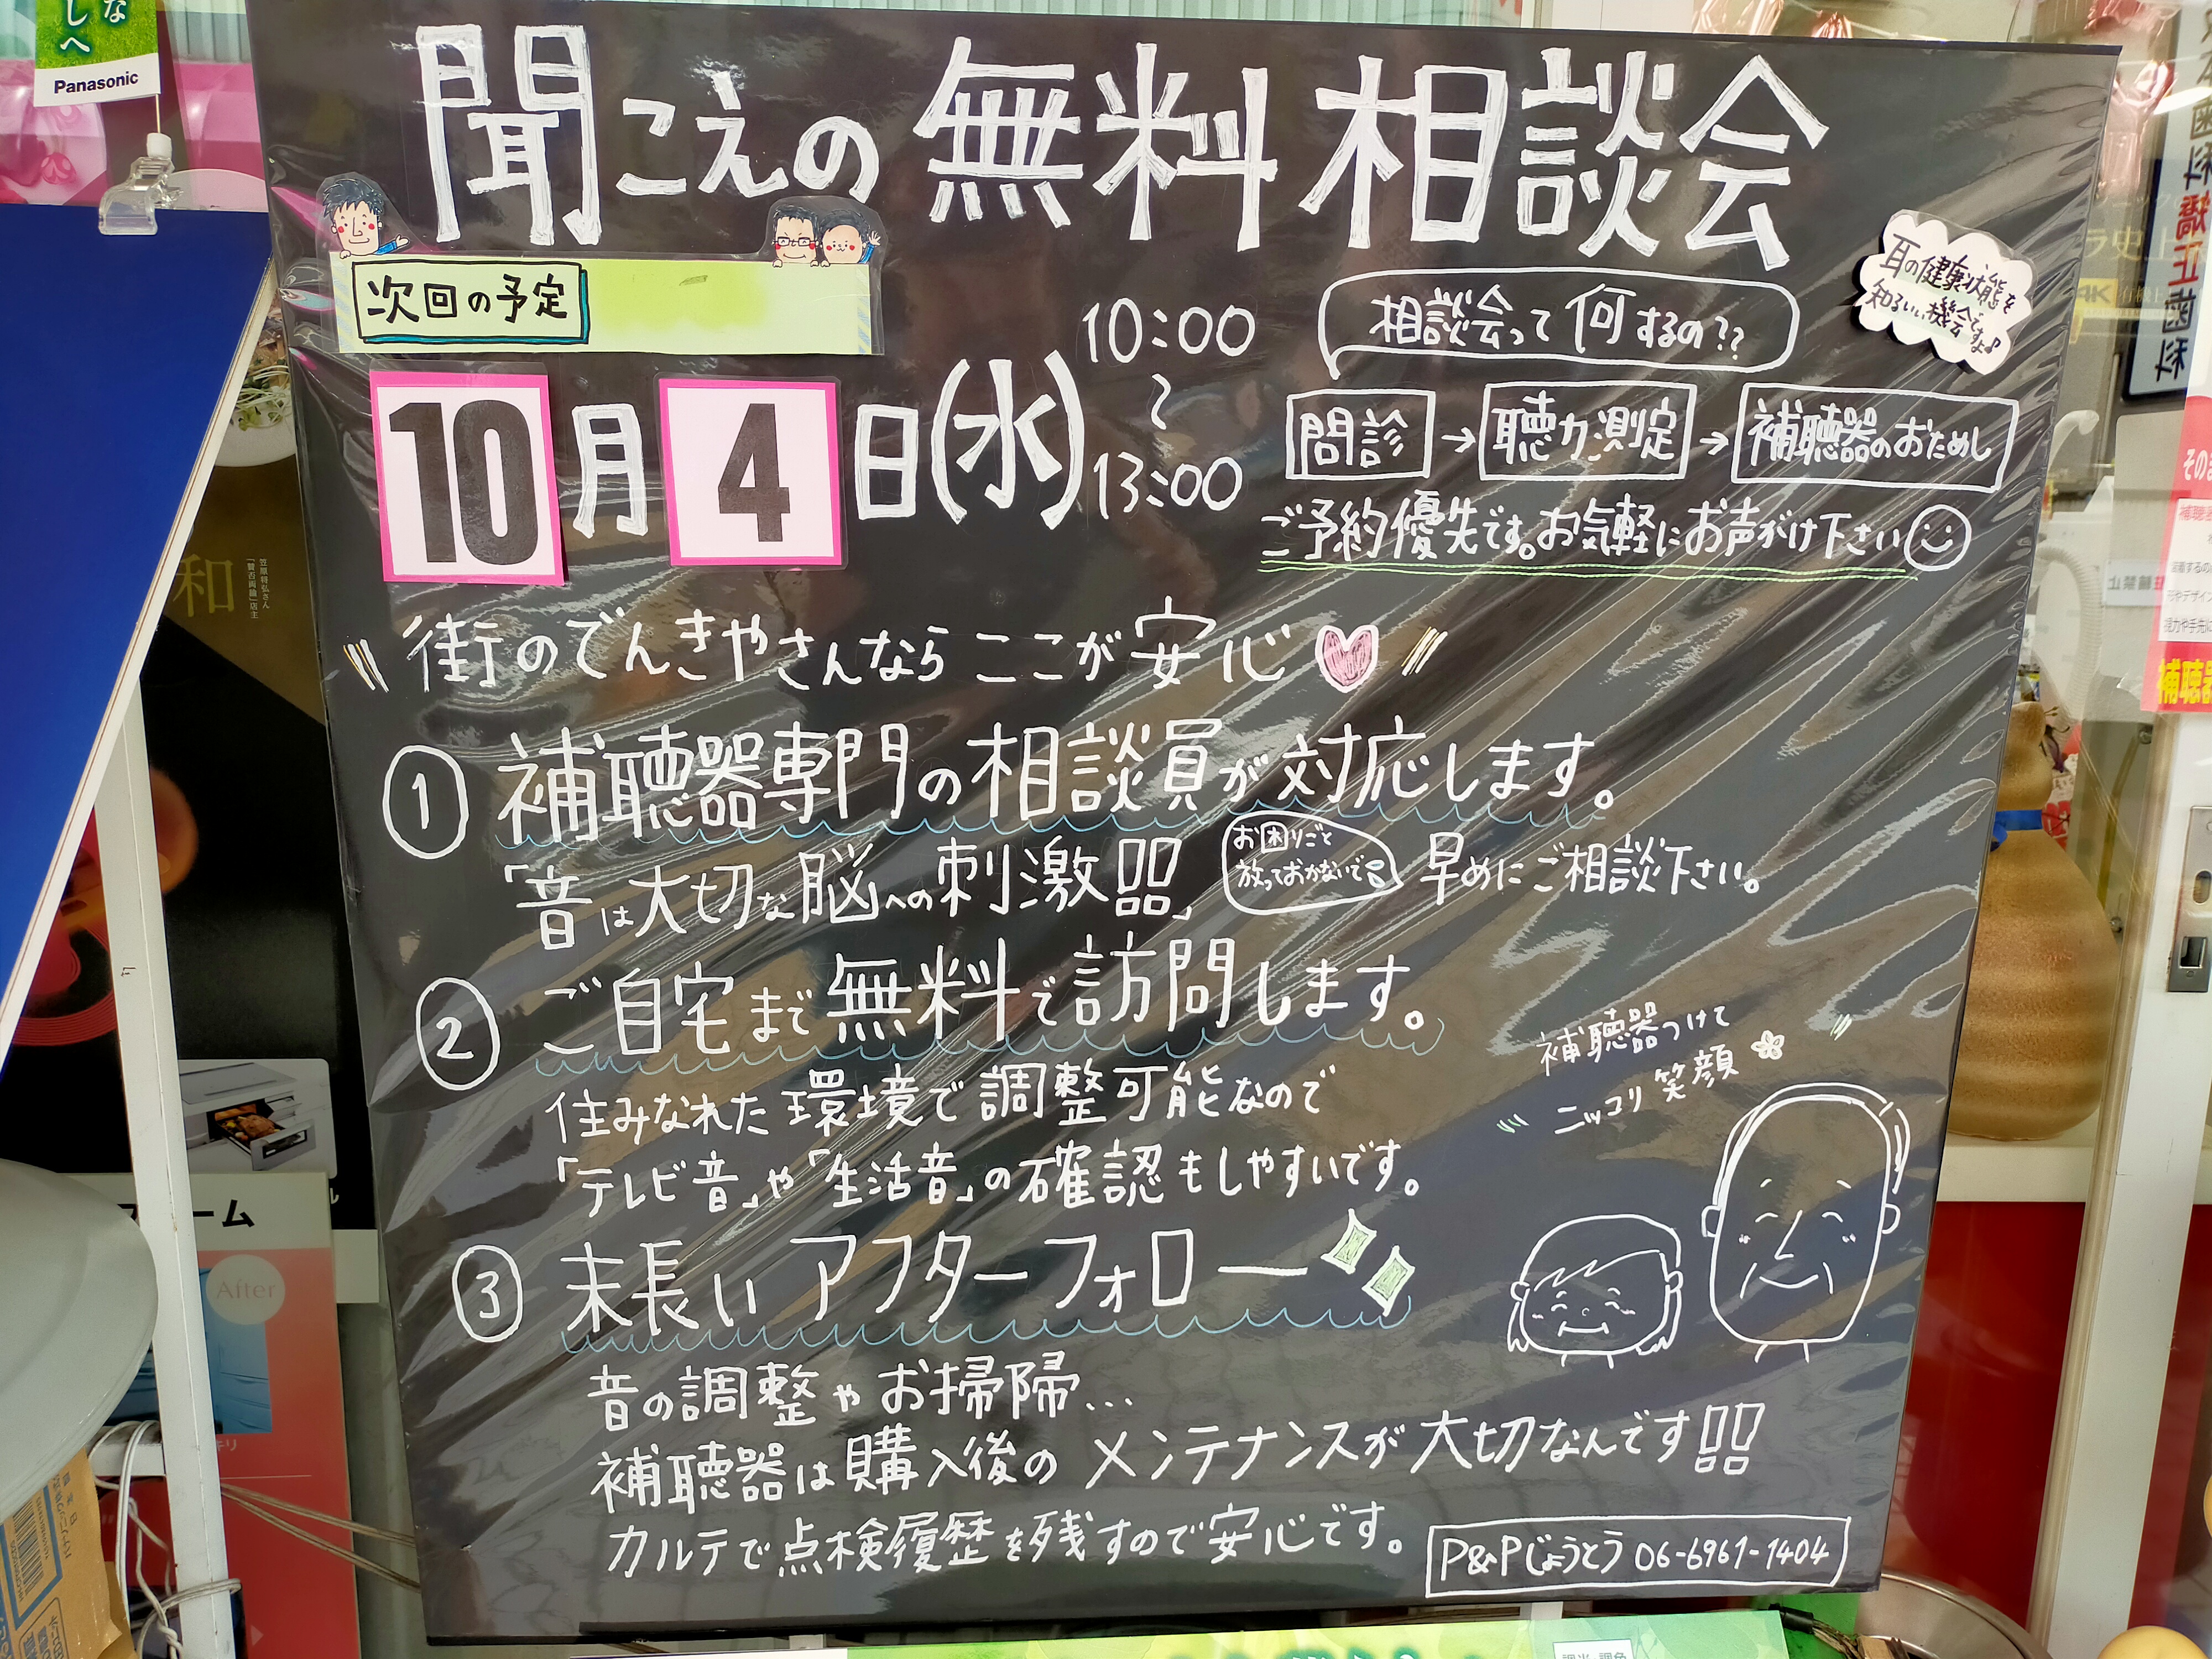 しへ
Panasonic
聞こえの無料相談会
次回の予定
10月4日(水)
10:00
〜
13:00
相談会って何するの??
耳の健康状態を
知るいい機会ですよ♪
問診→聴力測定→補聴器のおためし
ご予約優先です。お気軽にお声がけ下さい
街のでんきやさんなら ここが安心
① 補聴器専門の相談員が対応します。
「音は大切な脳への刺激!!」
お困りごと
放っておかないで
早めにご相談下さい。
② ご自宅まで無料で訪問します。
住みなれた環境で調整可能なので
「テレビ音」や「生活音」の確認もしやすいです。
補聴器つけて
ニッコリ笑顔
③ 末長い アフターフォロー
音の調整やお掃除...
補聴器は購入後のメンテナンスが大切なんです!!
カルテで点検履歴を残すので安心です。
P&Pじょうとう 06-6961-1404
和
笠原将弘さん
「賛否両論」店主
After